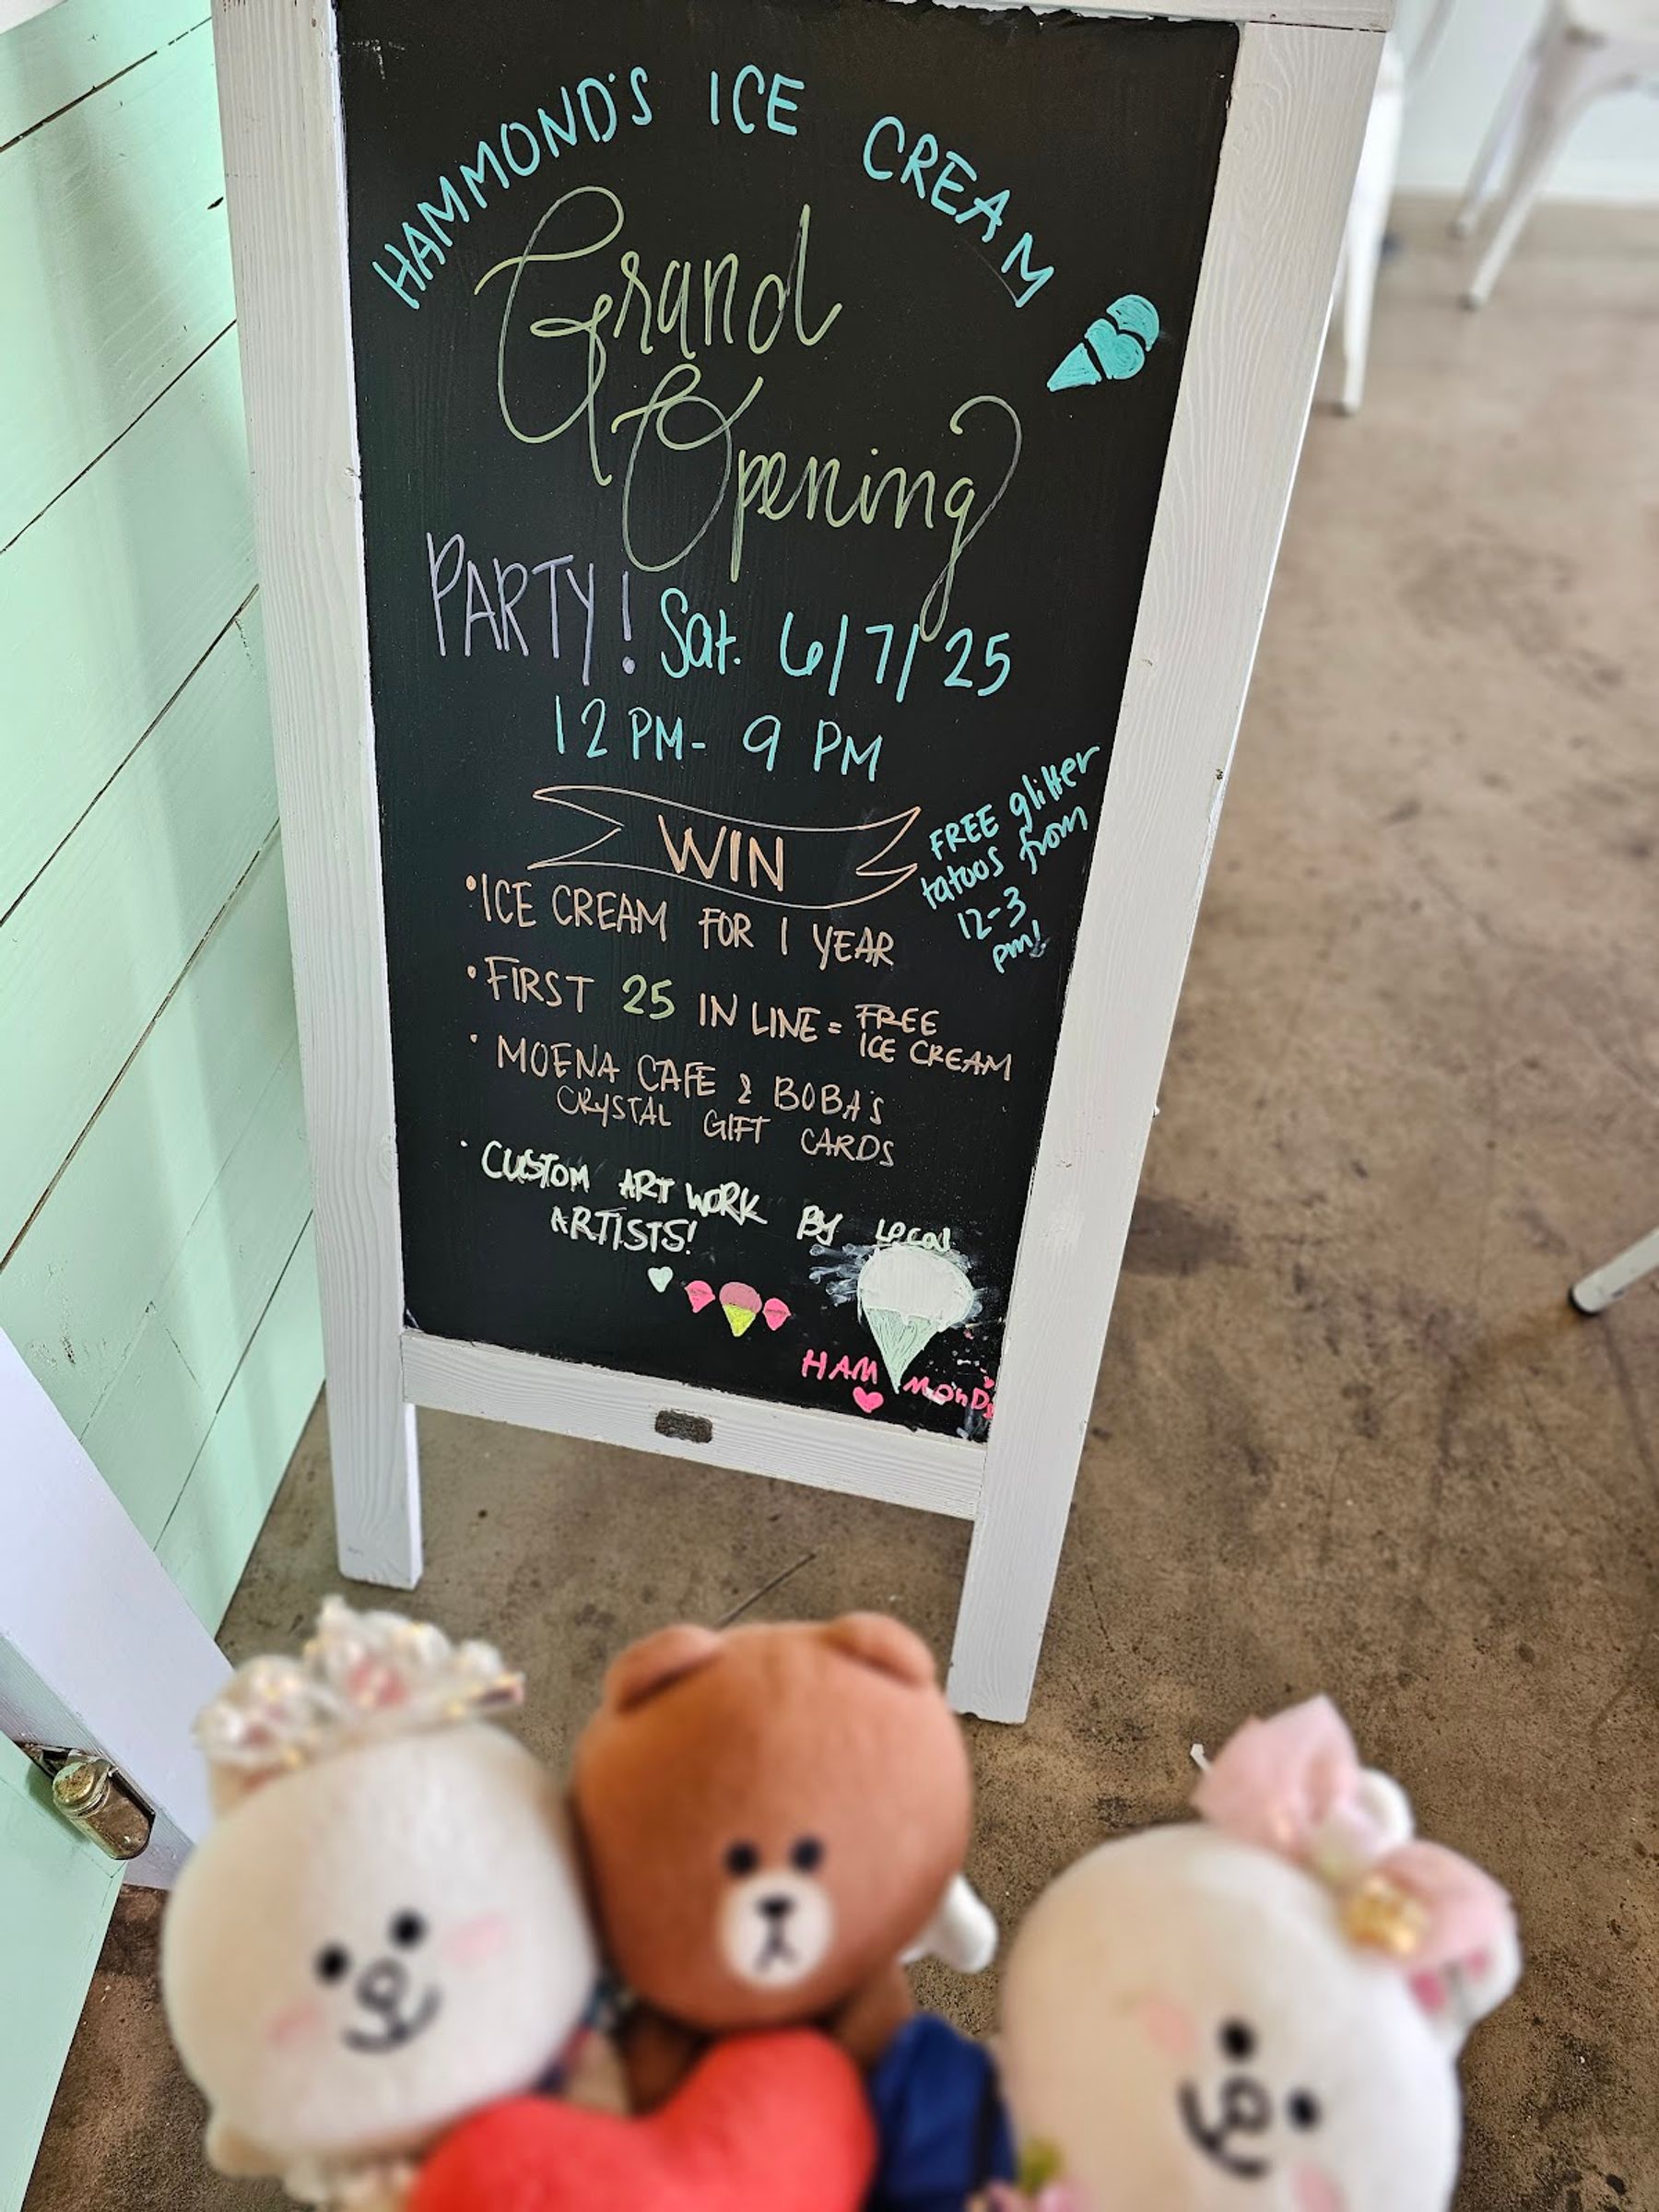 HAMMOND'S ICE CREAM
Grand
Opening
PARTY! Sat. 6/7/25
12 PM- 9 PM
WIN
FREE glitter
tatoos from
12-3
pm!
•ICE CREAM FOR 1 YEAR
•FIRST 25 IN LINE = FREE
ICE CREAM
• MOENA CAFE & BOBA'S
CRYSTAL GIFT CARDS
• CUSTOM ART WORK BY LOCAL
ARTISTS!
HAMMOND'S